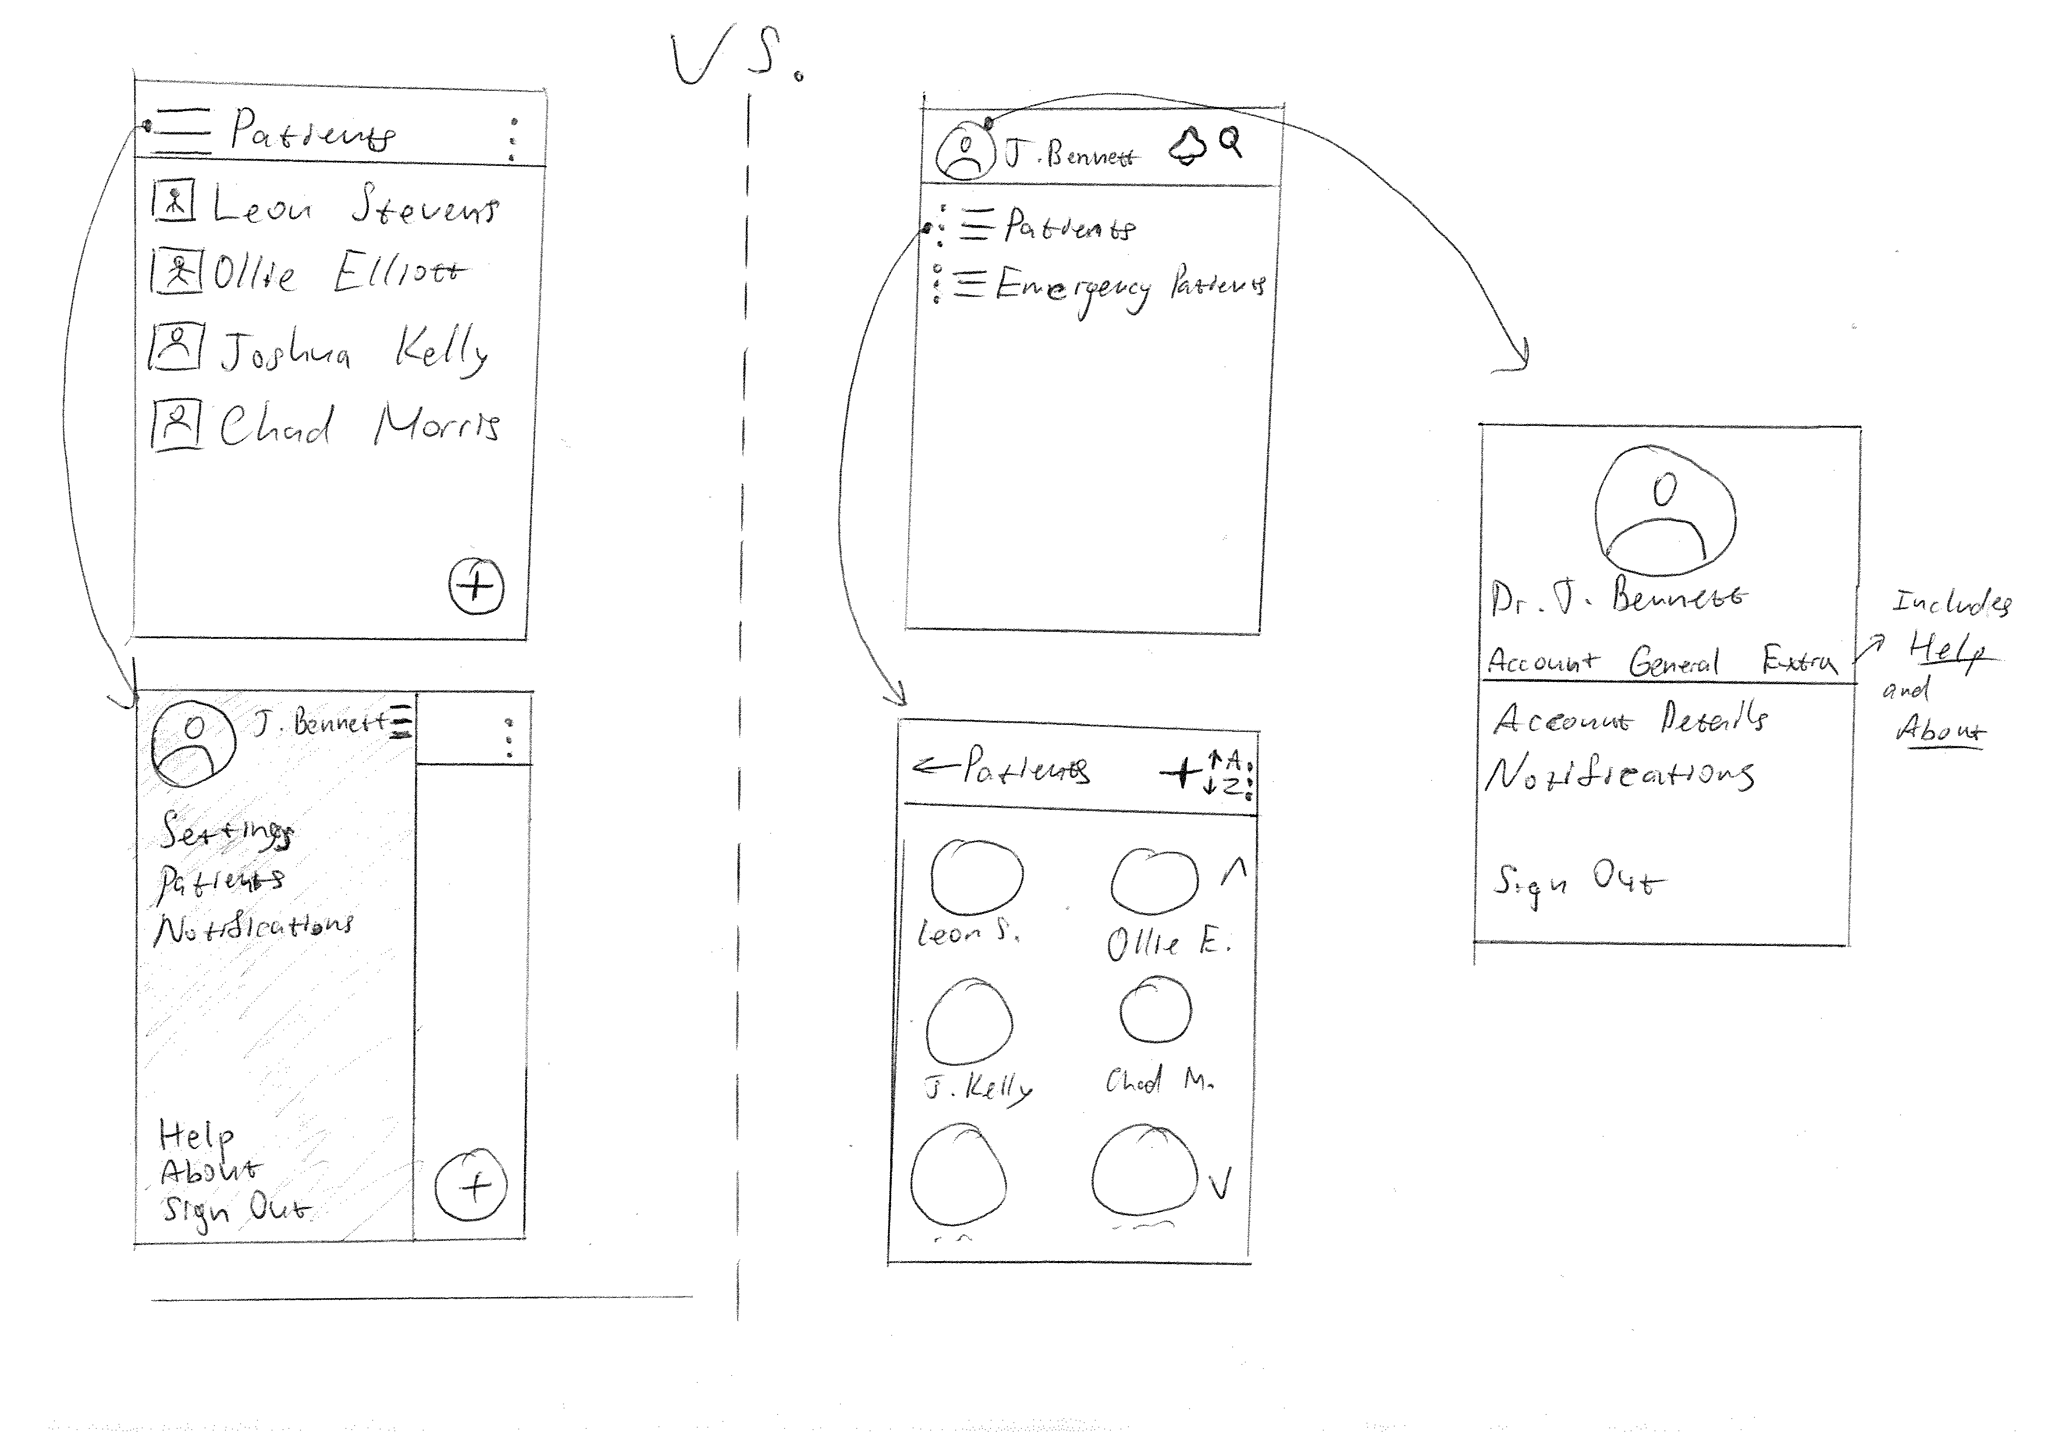 VS.
Patients
Leon Stevens
Ollie Elliott
Joshua Kelly
Chad Morris
J. Bennett
Settings
Patients
Notifications
Help
About
Sign Out
J. Bennett
Patients
Emergency Patients
Patients
A
Z
Leon S.
Ollie E.
J. Kelly
Chad M.
Dr. J. Bennett
Account General Extra
Account Details
Notifications
Sign Out
Includes
Help
and
About